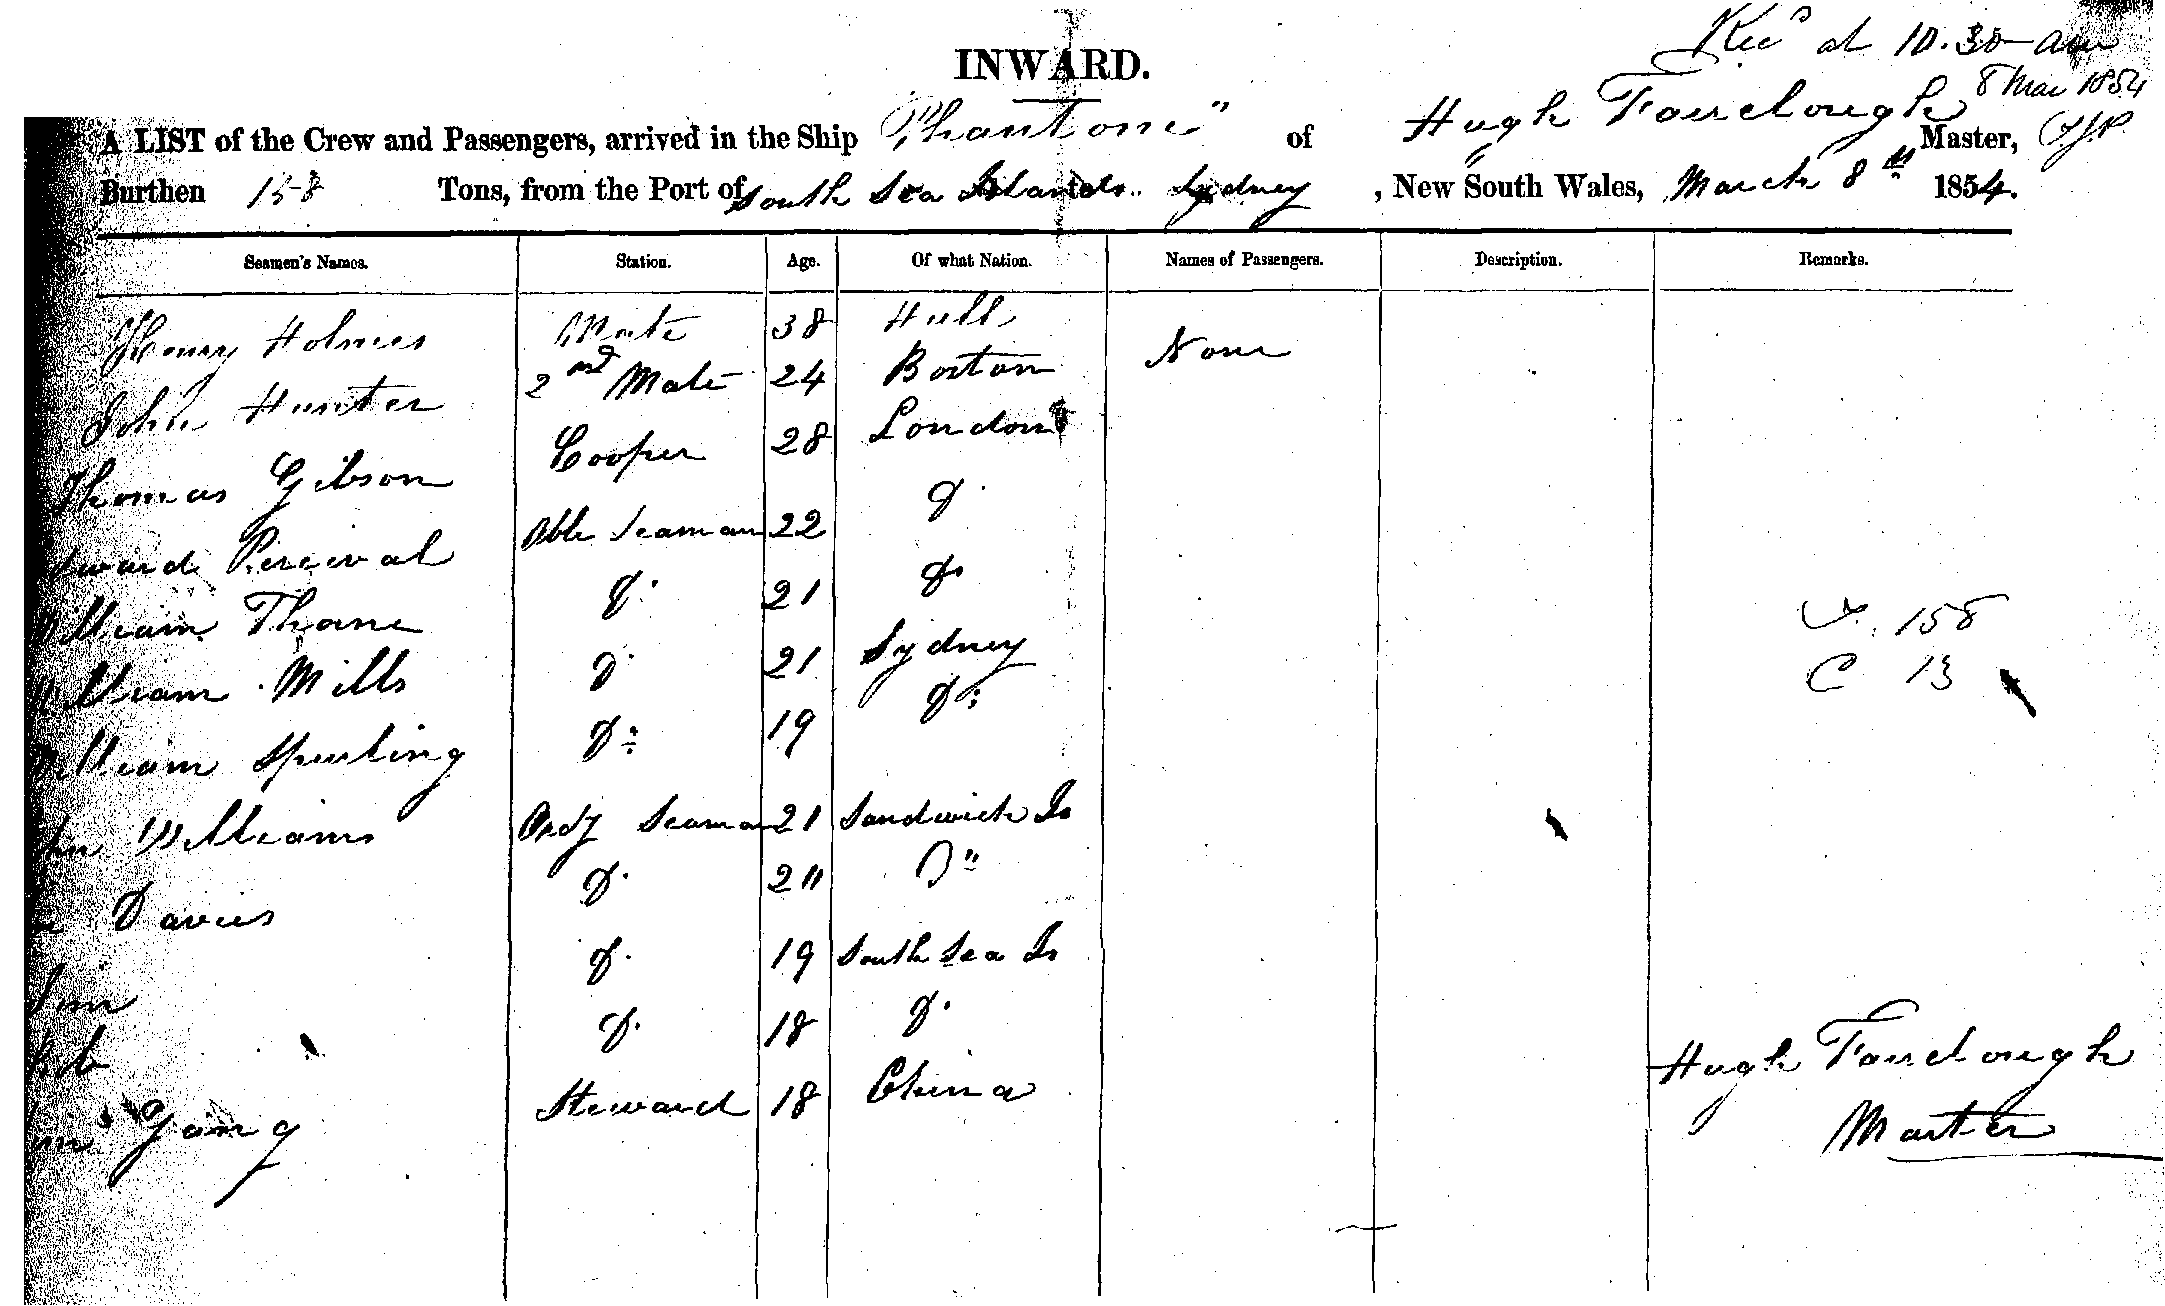 Recd at 10.30 am
8 Mar 1854
INWARD.
A LIST of the Crew and Passengers, arrived in the Ship "Phantom" of Hugh Fairclough Master,
Burthen 158 Tons, from the Port of South Sea Islands.. Sydney , New South Wales, March 8th 1854.
Seamen's Names. Station. Age. Of what Nation. Names of Passengers. Description. Remarks.
Henry Holmes Mate 38 Hull None
John Hunter 2nd Mate 24 Boston
Thomas Gibson Cooper 28 London
Edward Percival Able Seaman 22 Do
William Thane Do 21 Do
William Mills Do 21 Sydney
William Spurling Do 19 Do
John Williams Ordy Seaman 21 Sandwich Is
Davies Do 20 Do
Jim Do 19 South Sea Is
Bob Do 18 Do
Yang Steward 18 China
T. 158
C 13
Hugh Fairclough
Master